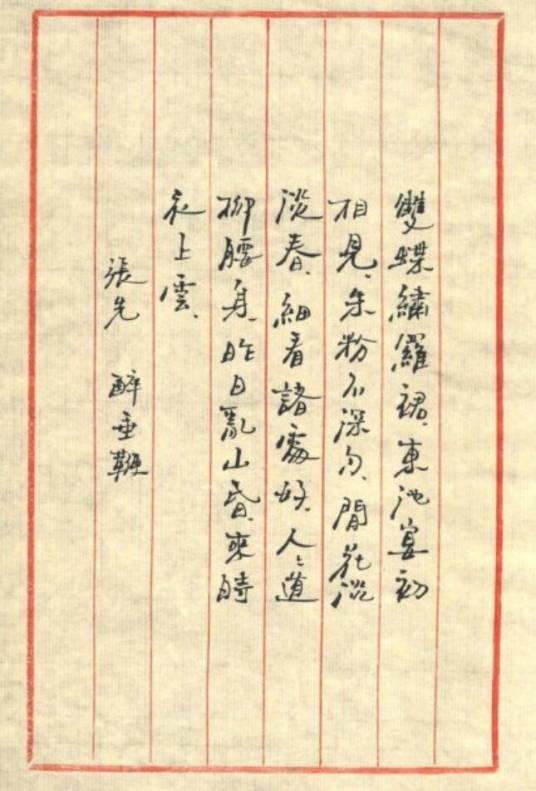 雙蝶繡羅裙、東池宴初
相見、朱粉不深勻、閒花淡
淡春、細看諸處好、人〻道
柳腰身、昨日亂山昏、來時
衣上雲、
張先　醉垂鞭